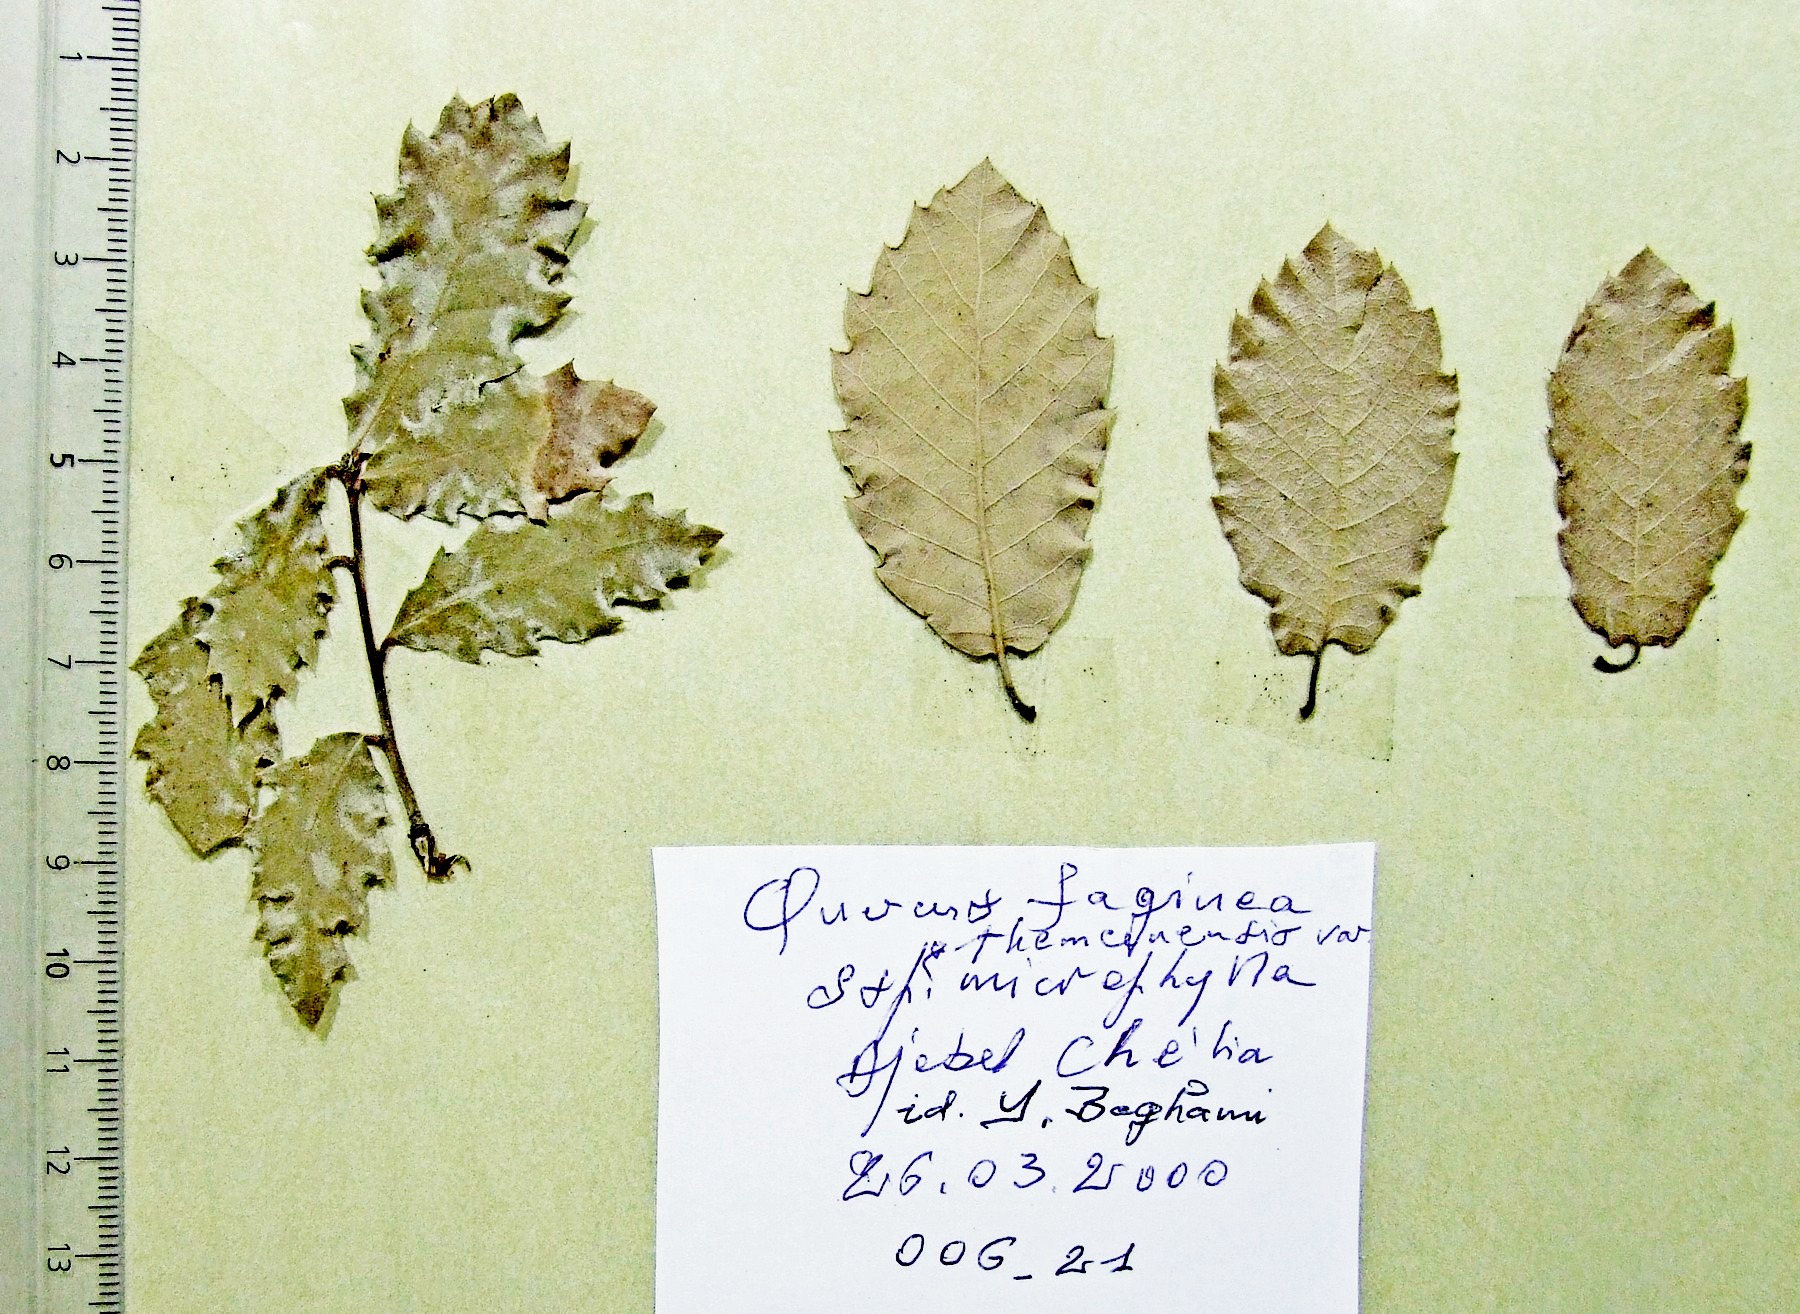 1
2
3
4
5
6
7
8
9
10
11
12
13
Quercus faginea
themcenensis var.
microphylla
Djebel Chélia
id. Y. Beghami
26.03.2000
006_21